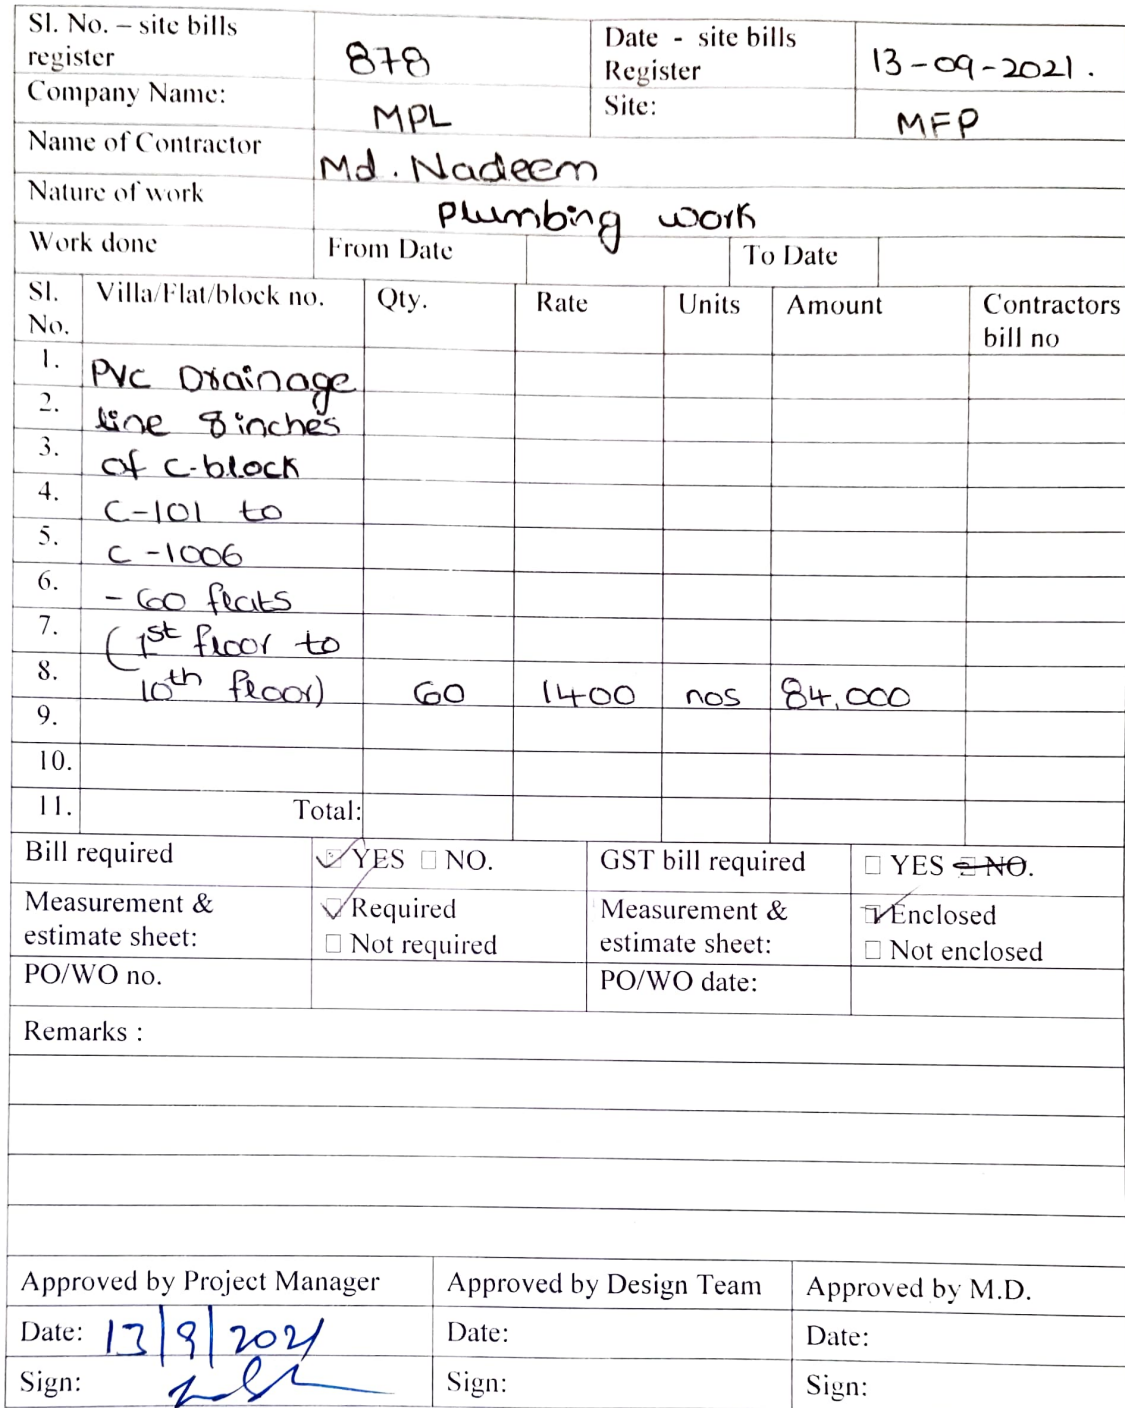 Sl. No. – site bills register 878 Date - site bills Register 13-09-2021.
Company Name: MPL Site: MFP
Name of Contractor Md. Nadeem
Nature of work Plumbing work
Work done From Date To Date
Sl. No. Villa/Flat/block no. Qty. Rate Units Amount Contractors bill no
1. PVC Drainage
2. line 8 inches
3. of C-block
4. C-101 to
5. C-1006
6. - 60 flats
7. (1st floor to
8. 10th floor) 60 1400 nos 84,000
9.
10.
11. Total:
Bill required YES NO. GST bill required YES NO.
Measurement & estimate sheet: Required Measurement & estimate sheet: Enclosed
Not required Not enclosed
PO/WO no. PO/WO date:
Remarks :
Approved by Project Manager Approved by Design Team Approved by M.D.
Date: 13/9/2021 Date: Date:
Sign: Sign: Sign: